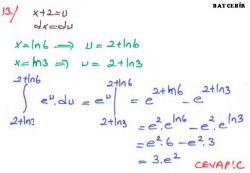 BAYCEBİR
13.) x+2=u
dx=du
x=ln6 ⟹ u=2+ln6
x=ln3 ⟹ u=2+ln3
∫_{2+ln3}^{2+ln6} e^u.du = e^u |_{2+ln3}^{2+ln6} = e^{2+ln6} - e^{2+ln3}
= e².e^{ln6} - e².e^{ln3}
= e².6 - e².3
= 3.e²
CEVAP:C